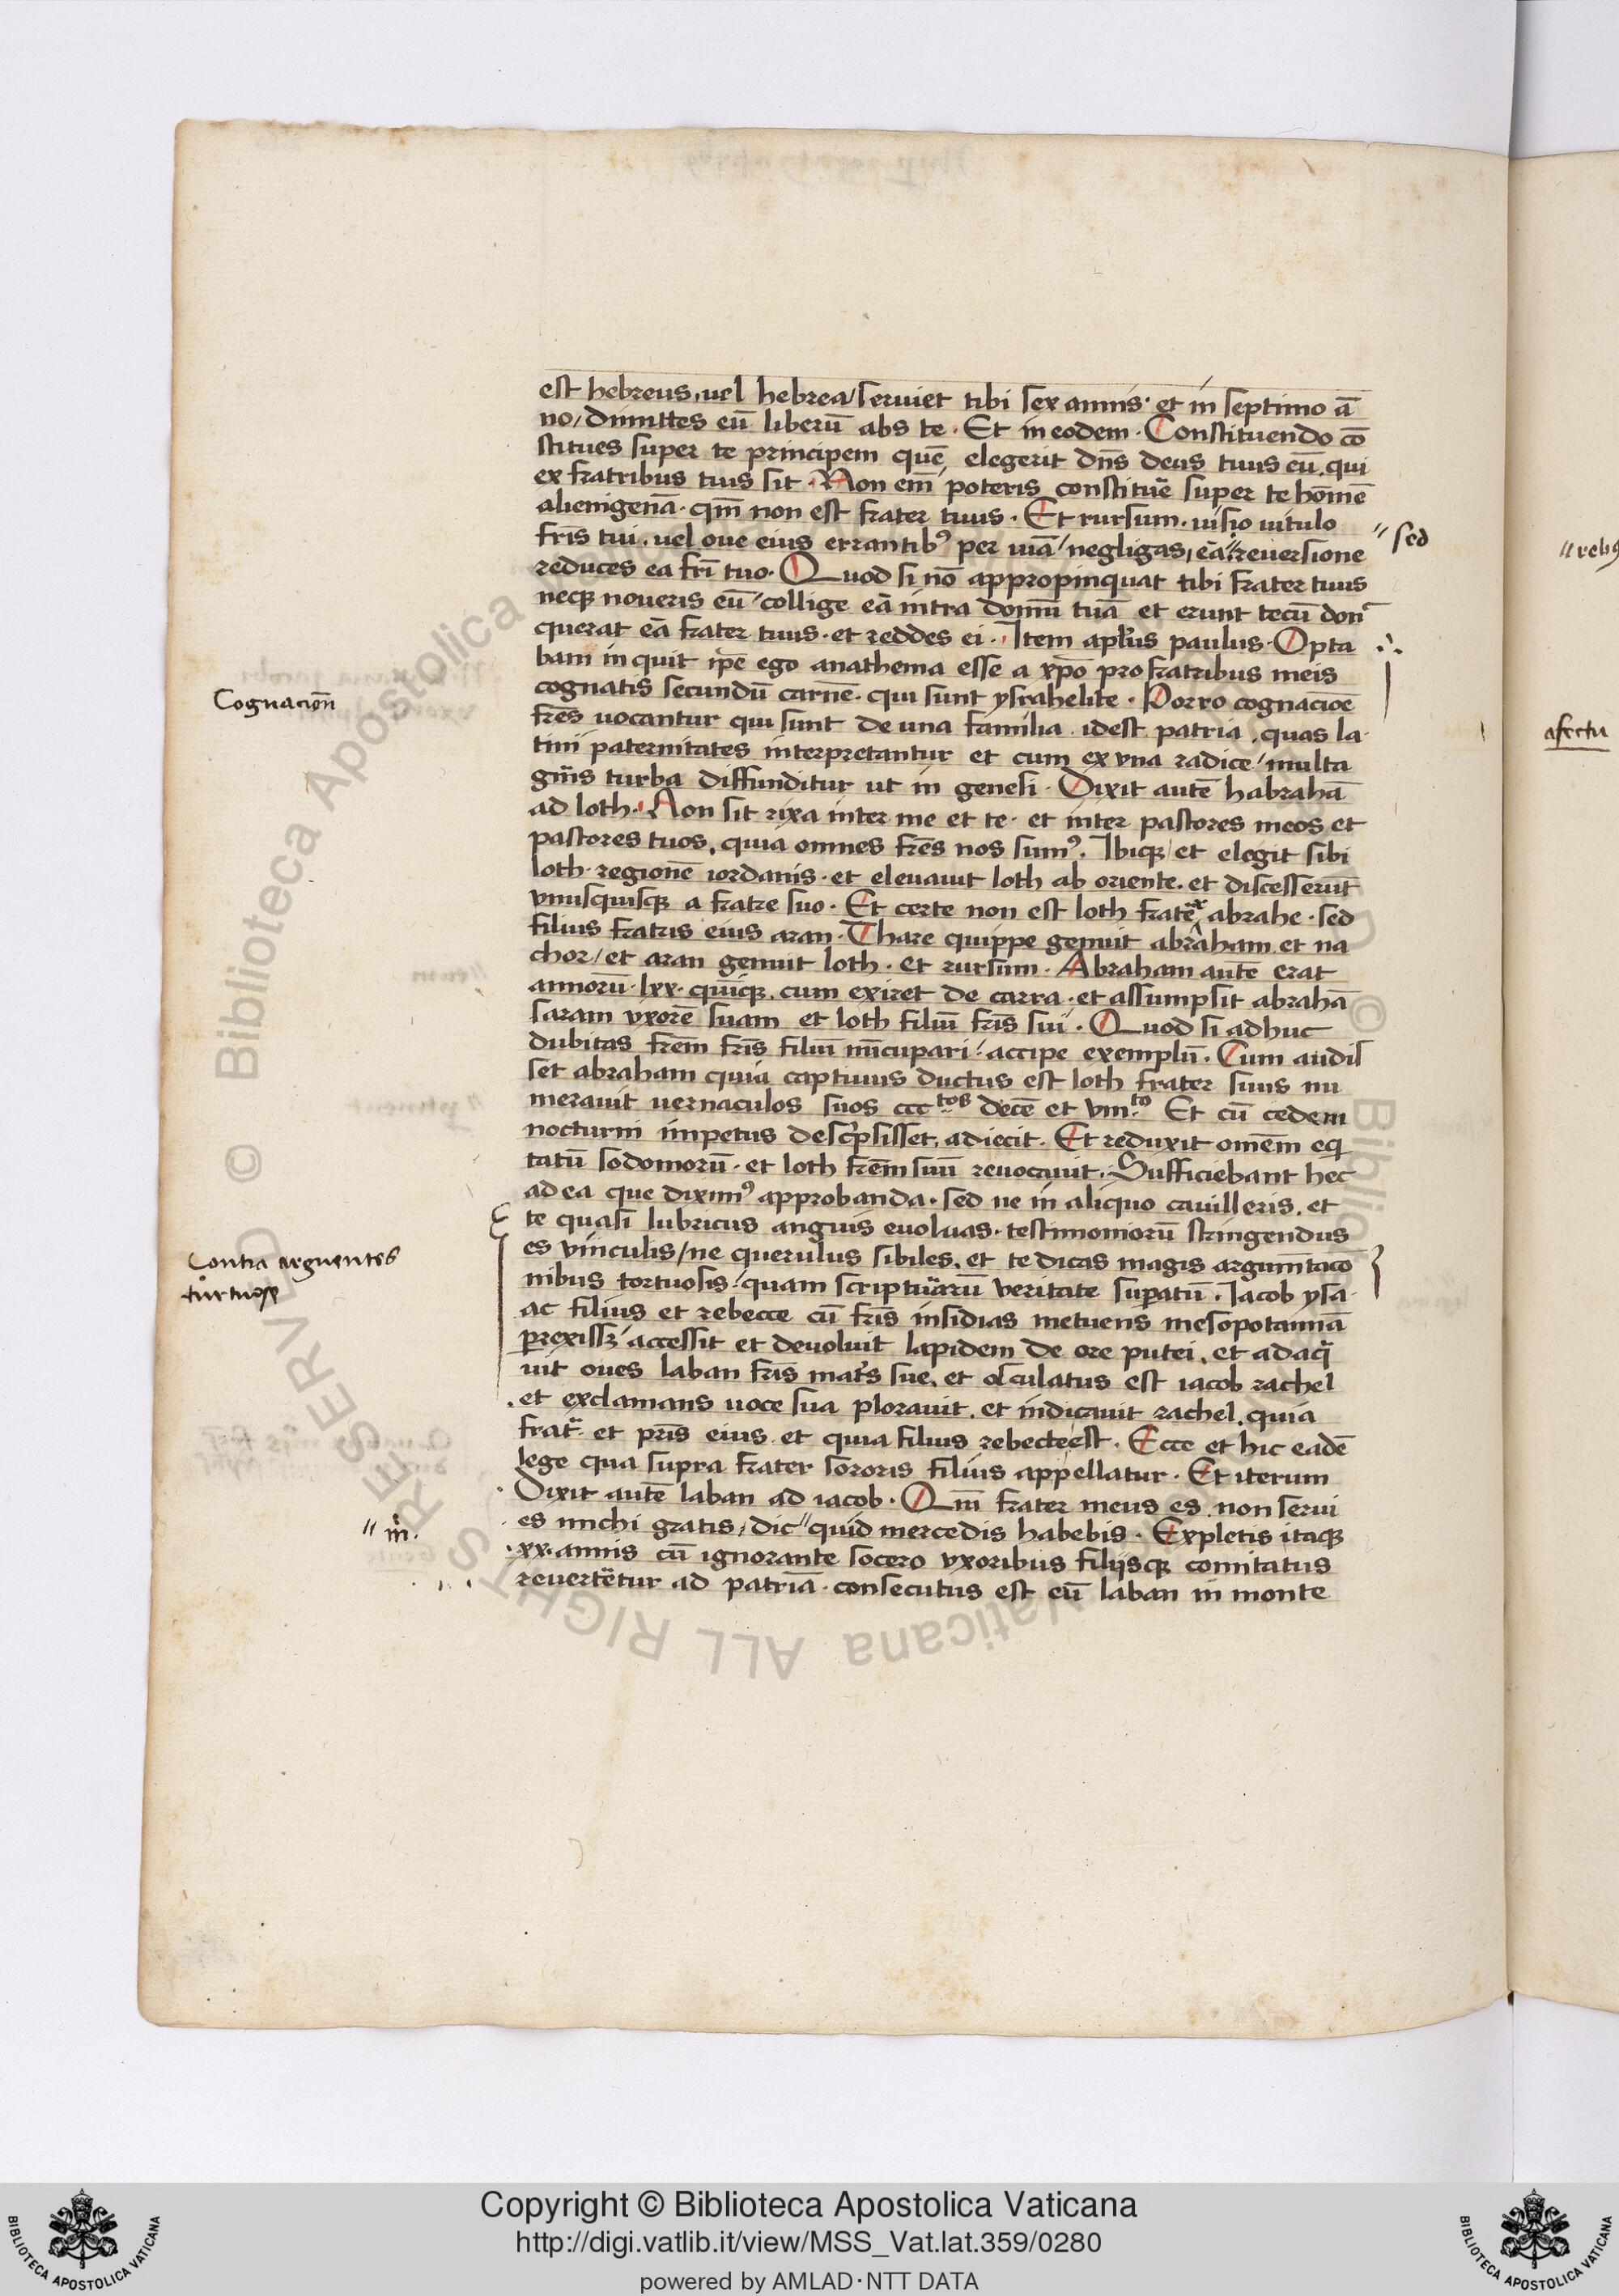 est hebreus, uel hebrea / seruiet tibi sex annis · et in septimo ā
no / dimittes eū liberū abs te · Et in eodem · Constituendo cō
stitues super te principem quē elegerit dn̄s deus tuus eū qui
ex fratribus tuis sit · Non em̄ poteris constitue᷑ super te homē
alienigenā · qm̄ non est frater tuus · Et rursum · uiso uitulo
fr̄is tui · uel oue eius errantibꝰ per uiā / negligas, eā // reuersione
// sed
reduces ea fr̄i tuo · Quod si nō appropinquat tibi frater tuus
necꝫ noueris eū / collige eā intra domū tuā et erunt tecū don᷑
querat eā frater tuus · et reddes ei · Item apl̄us paulus · Opta
bam inquit ip̄e ego anathema esse a xp̄o pro fratribus meis
cognatis secundū carnē · qui sunt ysrahelite · Porro cognacioē
Cognacion̄
fr̄es uocantur qui sunt de una familia · idest patria · quas la
tini paternitates interpretantur et cum ex vna radice / multa
gn̄is turba diffunditur ut in genesi · Dixit autē habrahā
ad loth · Non sit rixa inter me et te · et inter pastores meos et
pastores tuos, quia omnes fr̄es nos sumꝰ. Ibiqꝫ / et elegit sibi
loth · regionē iordanis · et eleuauit loth ab oriente · et discesserūt
vnusquisqꝫ a fratre suo · Et certe non est loth frater abrahe · sed
filius fratris eius aran · Thare quippe genuit abraham et na
chor / et aran genuit loth · et rursum · Abraham autē erat
annorū · lxx · quīcqꝫ cum exiret de carra · et assumpsit abrahā
saram vxorē suam et loth filiū fr̄is sui · Quod si adhuc
dubitas fr̄em fr̄is filiū nūcupari / accipe exemplū · Cum audis
set abraham quia captiuus ductus est loth frater suus nu
merauit uernaculos suos ccc tos decē et vııı to Et cū cedem
nocturni impetus descp̄sisset, adiecit · Et reduxit omēm eq
tatū sodomorū · et loth fr̄em suū reuocauit · Sufficiebant hec
ad ea que diximꝰ approbanda · sed ne in aliquo cauilleris, et
te quasi lubricus anguis euoluas · testimoniorū stringendus
es vinculis / ne querulus sibiles, et te dicas magis argum̄taciō
Contra arguentes
tortuose
nibus tortuosis / quam scripturarū veritate supatū · Iacob ysa
ac filius et rebecce cū fr̄is insidias metuens mesopotamiā
prexissꝫ / accessit et deuoluit lapidem de ore putei, et adaq᷑
uit oues laban fr̄is mat᷑s sue, et osculatus est iacob rachel
· et exclamans uoce sua plorauit, et indicauit rachel, quia
frat᷑ et pr̄is eius et quia filius rebecce est · Ecce et hic eadē
lege qua supra frater sororis filius appellatur · Et iterum
· Dixit autē laban ad iacob · Qm̄ frater meus es non serui
es michi gratis, dic // quid mercedis habebis · Expletis itaqꝫ
// m͛.
· xx · annis cū ignorante socero vxoribus filijsqꝫ comitatus
reuertētur ad patriā · consecutus est eū laban in monte
// rebꝰ
afectu
Copyright © Biblioteca Apostolica Vaticana
http://digi.vatlib.it/view/MSS_Vat.lat.359/0280
powered by AMLAD·NTT DATA
BIBLIOTECA APOSTOLICA VATICANA
BIBLIOTECA APOSTOLICA VATICANA